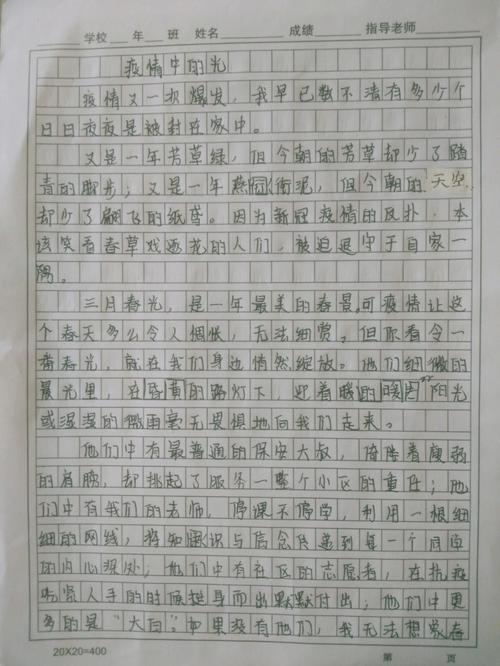 学校 年 班 姓名 成绩 指导老师
疫情中的光
疫情又一次爆发，我早已数不清有多少个
日日夜夜是被封在家中。
又是一年芳草绿，但今朝的芳草却少了踏
青的脚步；又是一年燕回衔泥，但今朝的天空
却少了翩飞的纸鸢。因为新冠疫情的反扑，本
该笑看春草戏逐花的人们，被迫退守于自家一
隅。
三月春光，是一年最美的春景，可疫情让这
个春天多么令人惆怅，无法细赏。但你看令一
番春光，就在我们身边悄然绽放。他们细微的
晨光里，在昏黄的路灯下，迎着暖的暖阳光
或湿湿的微雨毫无畏惧地向我们走来。
他们中有最普通的保安大叔，倚跨着瘦弱
的肩膀，却挑起了服务一整个小区的重任；他
们中有我们的老师，停课不停学，利用一根细
细的网线，将知识与信念传递到每一个同学
的内心深处；他们中有社区的志愿者，在抗疫
吃紧人手的时候挺身而出默默付出；他们中更
多的是“大白”。如果没有他们，我无法想象春
20X20=400
第 页